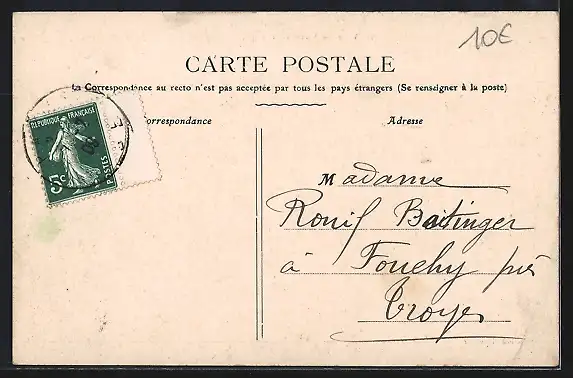 10€
CARTE POSTALE
La Correspondance au recto n'est pas acceptée par tous les pays étrangers (Se renseigner à la poste)
orrespondance
Adresse
REPUBLIQUE FRANÇAISE
POSTES
5c
Madame
Batinger
à Fouchy près
Troyes